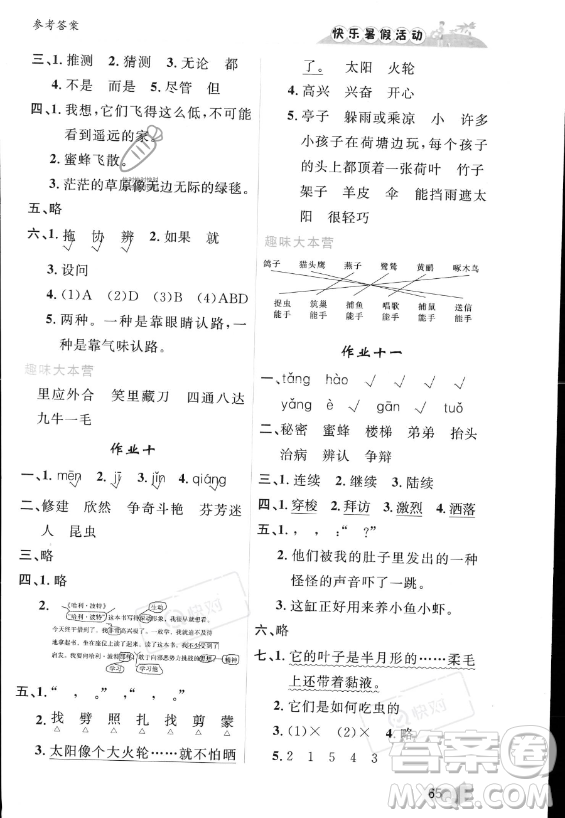 参考答案
快乐暑假活动
三、1. 推测 2. 猜测 无论 都
3. 不是 而是 5. 尽管 但
四、1. 我想，它们飞得这么低，不可能看
到遥远的家。
2. 蜜蜂飞散。
3. 茫茫的草原像无边无际的绿毯。
五、略
六、1. 拖 协 辨 2. 如果 就
3. 设问
4. (1)A (2)D (3)B (4)ABD
5. 两种。一种是靠眼睛认路，一
种是靠气味认路。
趣味大本营
里应外合 笑里藏刀 四通八达
九牛一毛
作业十
一、1. mēn 2. jī 3. jǐn 4. qiáng
二、修建 欣然 争奇斗艳 芬芳迷
人 昆虫
三、略
四、1. 略
2.
《哈利·波特》 生动
五、1. “ ， 。” “ ， 。”
2. 找 劈 照 扎 剪 蒙
3. 太阳像个大火轮……就不怕晒
了。 太阳 火轮
4. 高兴 兴奋 开心
5. 亭子 躲雨或乘凉 小 许多
小孩子在荷塘边玩，每个孩子
的头上都顶着一张荷叶 竹子
架子 羊皮 伞 能挡雨遮太
阳 很轻巧
趣味大本营
鸽子 猫头鹰 燕子 鹭鸶 黄鹂 啄木鸟
捉虫 筑巢 捕鱼 唱歌 捕鼠 送信
能手 能手 能手 能手 能手 能手
作业十一
一、tǎng hào √ √
yáng è √ gān tuǒ
二、秘密 蜜蜂 楼梯 弟弟 抬头
治病 辨认 争辩
三、1. 连续 2. 继续 3. 陆续
四、1. 穿梭 2. 拜访 3. 激烈 4. 洒落
五、1. ，：“ ？”
2. 他们被我的肚子里发出的一种
怪怪的声音吓了一跳。
3. 这缸正好用来养小鱼小虾。
六、略
七、1. 它的叶子是半月形的……柔毛
上还带着黏液。
2. 它们是如何吃虫的
3. (1)× (2)× 4. 略
5. 2 1 5 4 3
65
答案圈